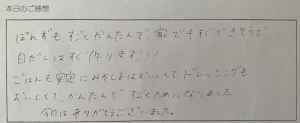 本日のご感想
ぽれずも すごくかんたんで、家ですぐできそうで
白だしはすぐ作ります!!!
ごはんも みそしるはおいしくて ドレッシングも
おいしくて、かんたんで すごくためになりました
今日はありがとうございました。